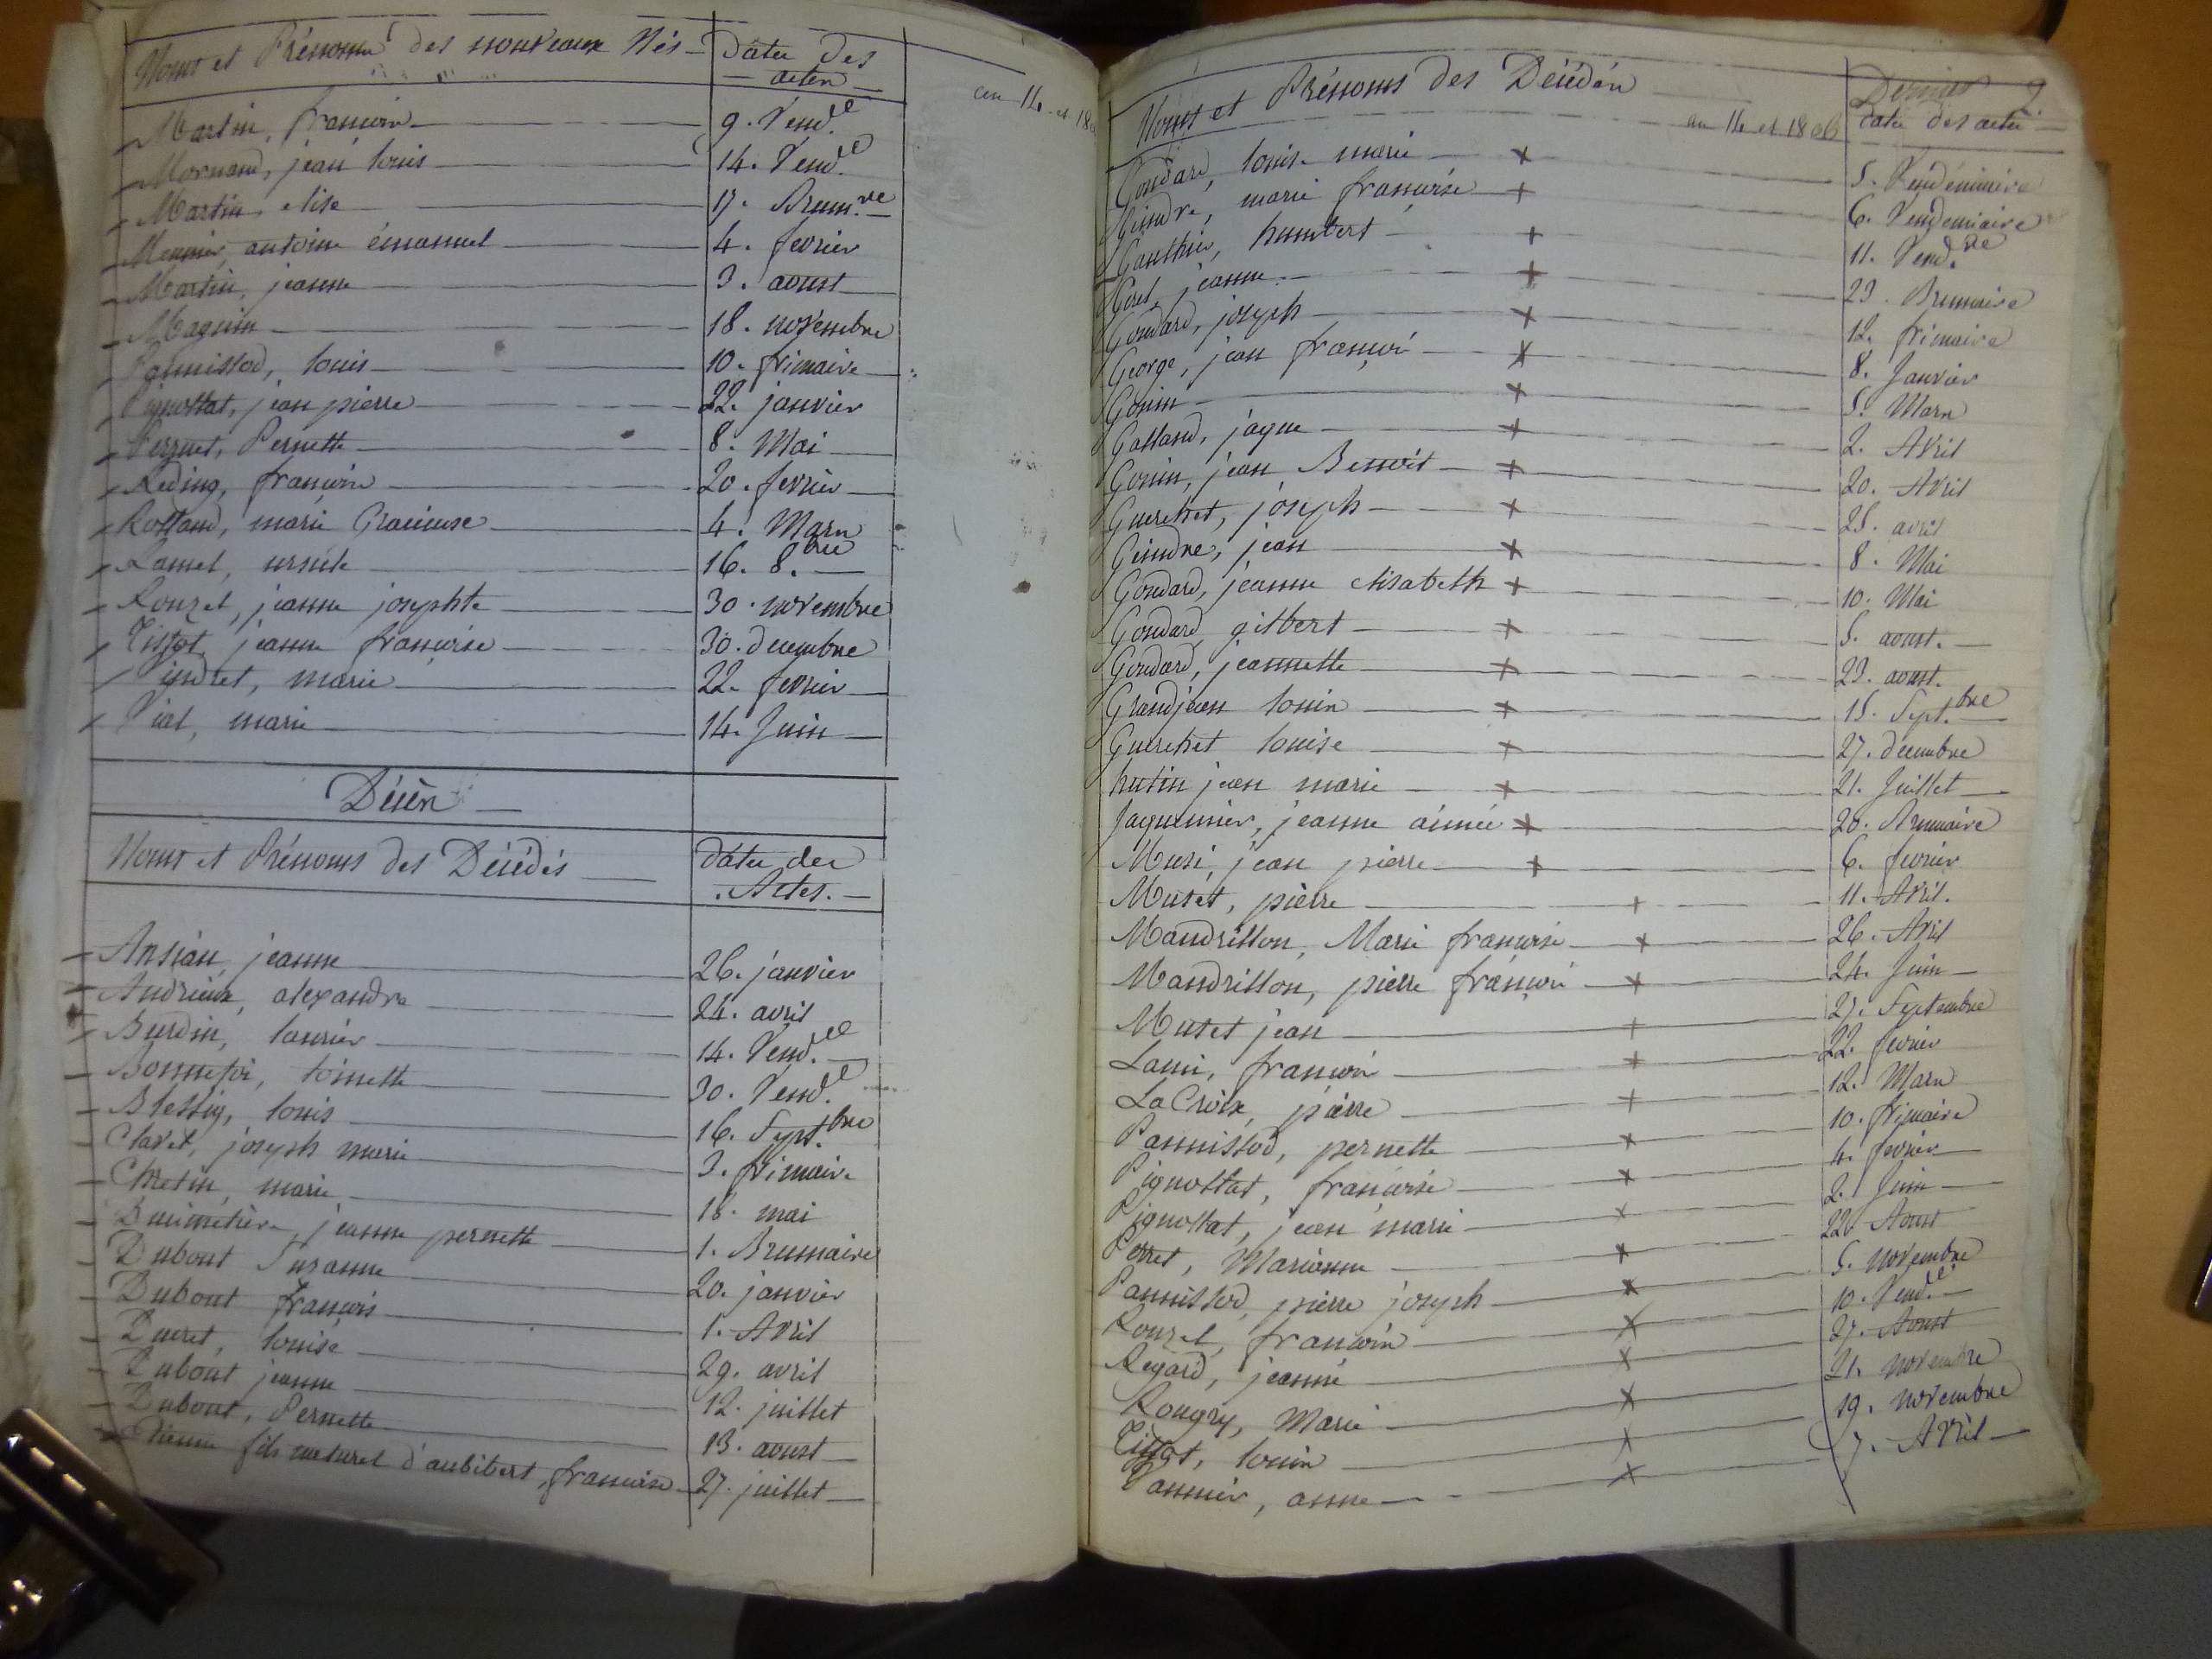 Noms et Prénoms des nouveaux Nés Dates des
actes
Martin, françois 9. Vend.re
Mornand, jean louis 14. Vend.re
Martin, elise 17. Brum.re
Meunier, antoine émanuel 4. fevrier
Martin, jeanne 3. aoust
Maguin 18. novembre
Pannissod, louis 10. frimaire
Pignollat, jean pierre 22. janvier
Pernette 8. Mai
Reding, françois 20. fevrier
Rolland, marie Gracieuse 4. Mars
Ramel, ursule 16. 8.bre
Rouzet, jeanne josephte 30. novembre
Tissot, jeanne françoise 30. decembre
marie 22. fevrier
Vial, marie 14. Juin
Décès
Noms et Prénoms des Décédés Dates des
Actes.
Ansian, jeanne 26. janvier
Andrieux, alexandre 24. avril
Burdin, 14. Vend.re
Bonnefoi, toinette 30. Vend.re
Blessig, louis 16. Sept.bre
Claret, joseph marie 3. frimaire
Chretin, marie 18. mai
Dumetière, jeanne pernette 1. Brumaire
Dubout Suzanne 20. janvier
Dubout françois 1. Avril
Ducret, louise 29. avril
Dubout jeanne 12. juillet
Dubout, Pernette 13. aoust
Etienne fils naturel d'aubibert, françoise 27. juillet
an 14 et 180
Noms et Prénoms des Décédés an 14 et 1806 dates des actes
Goudard, louise marie + 5. Vendémiaire
Gindre, marie françoise + 6. Vendemiaire
Gauthier, humbert + 11. Vend.re
Goret, jeanne + 23. Brumaire
Goudard, joseph + 12. frimaire
George, jean françois + 8. Janvier
Gonin + 5. Mars
Galland, jaque + 2. Avril
Gonin, jean Benoit + 20. Avril
Guerchet, joseph + 25. avril
Geindre, jean + 8. Mai
Goudard, jeanne elisabeth + 10. Mai
Goudard gilbert + 5. aoust.
Goudard, jeannette + 23. aoust.
Grandjean louis + 15. Sept.bre
Guerchet louise + 27. decembre
hutin jean marie + 21. Juillet
Jaquemier, jeanne aimée + 20. Brumaire
Musi, jean pierre + 6. fevrier
Muset, pierre + 11. Avril.
Mandrillon, Marie françoise + 26. Avril
Mandrillon, pierre françois + 24. Juin
Muset jean + 27. Septembre
Lami, françois + 22. fevrier
LaCroix, pierre + 12. Mars
Pannissod, pernette + 10. frimaire
Pignollat, françoise + 4. fevrier
Pignollat, jean marie + 2. Juin
Perret, Marianne + 22. Aoust
Pannissod, pierre joseph + 5. novembre
Rouzet, françois + 10. Vend.re
Regard, jeanne + 27. Aoust
Rougry, Marie + 21. novembre
Tissot, louis + 19. novembre
Vannier, anne + 7. Avril